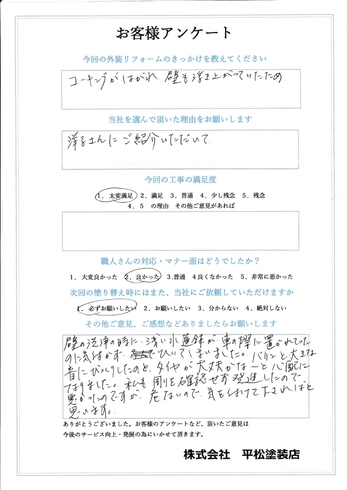 お客様アンケート
今回の外装リフォームのきっかけを教えてください
コーキングがはがれ 壁も浮き上がっていたため
当社を選んで頂いた理由をお願いします
さんに ご紹介いただいて
今回の工事の満足度
1、大変満足 2、満足 3、普通 4、少し残念 5、残念
4、5 の理由 その他ご意見があれば
職人さんの対応・マナー面はどうでしたか？
1、大変良かった 2、良かった 3、普通 4、良くなかった 5、非常に悪かった
次回の塗り替え時にはまた、当社にご依頼していただけますか
1、必ずお願いしたい 2、お願いしたい 3、分からない 4、絶対しない
その他ご意見、ご感想などありましたらお願いします
壁の洗浄の時に、浅い水蓮鉢が車の際に置かれていた
のに気付かず ひいてしまいました。バリッと大きな
音にびっくりしたのと、タイヤが大丈夫かな…と心配に
なりました。私も周りを確認せず発進したので
悪かったのですが、危ないので、気を付けて下さればと
思います。
ありがとうございました。お客様のアンケートなど、頂いたご意見は
今後のサービス向上・発展の為にいかせて頂きます。
株式会社 平松塗装店